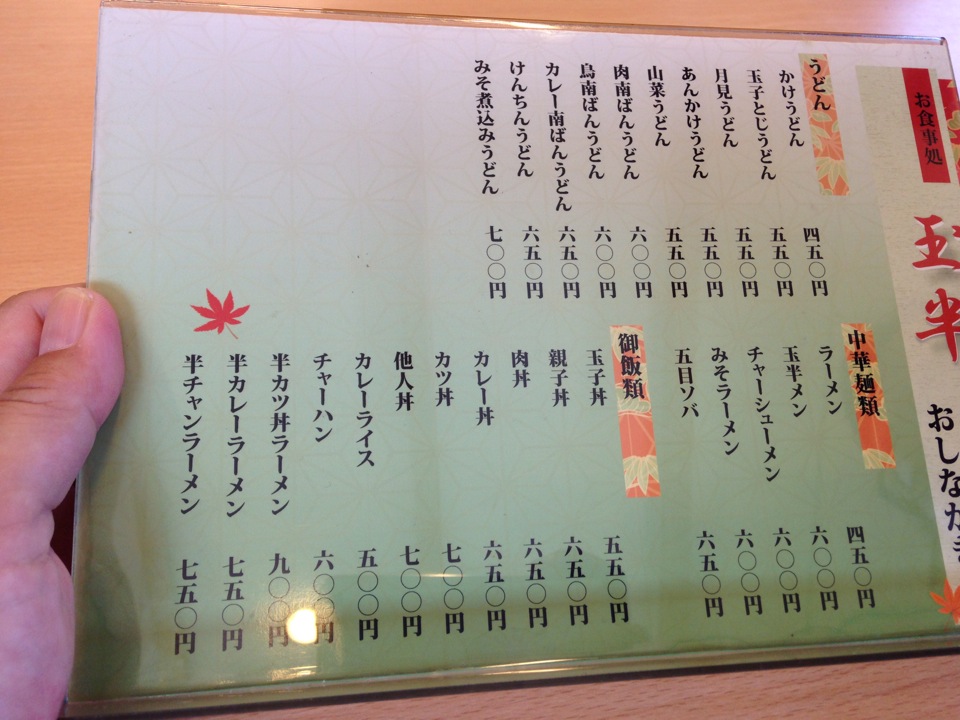 お食事処
玉半
おしながき
うどん
かけうどん 四五〇円
玉子とじうどん 五五〇円
月見うどん 五五〇円
あんかけうどん 五五〇円
山菜うどん 五五〇円
肉南ばんうどん 六〇〇円
鳥南ばんうどん 六〇〇円
カレー南ばんうどん 六五〇円
けんちんうどん 六五〇円
みそ煮込みうどん 七〇〇円
中華麺類
ラーメン 四五〇円
玉半メン 六〇〇円
チャーシューメン 六〇〇円
みそラーメン 六〇〇円
五目ソバ 六五〇円
御飯類
玉子丼 五五〇円
親子丼 六五〇円
肉丼 六五〇円
カレー丼 六五〇円
カツ丼 七〇〇円
他人丼 七〇〇円
カレーライス 五〇〇円
チャーハン 六〇〇円
半カツ丼ラーメン 九〇〇円
半カレーラーメン 七五〇円
半チャンラーメン 七五〇円